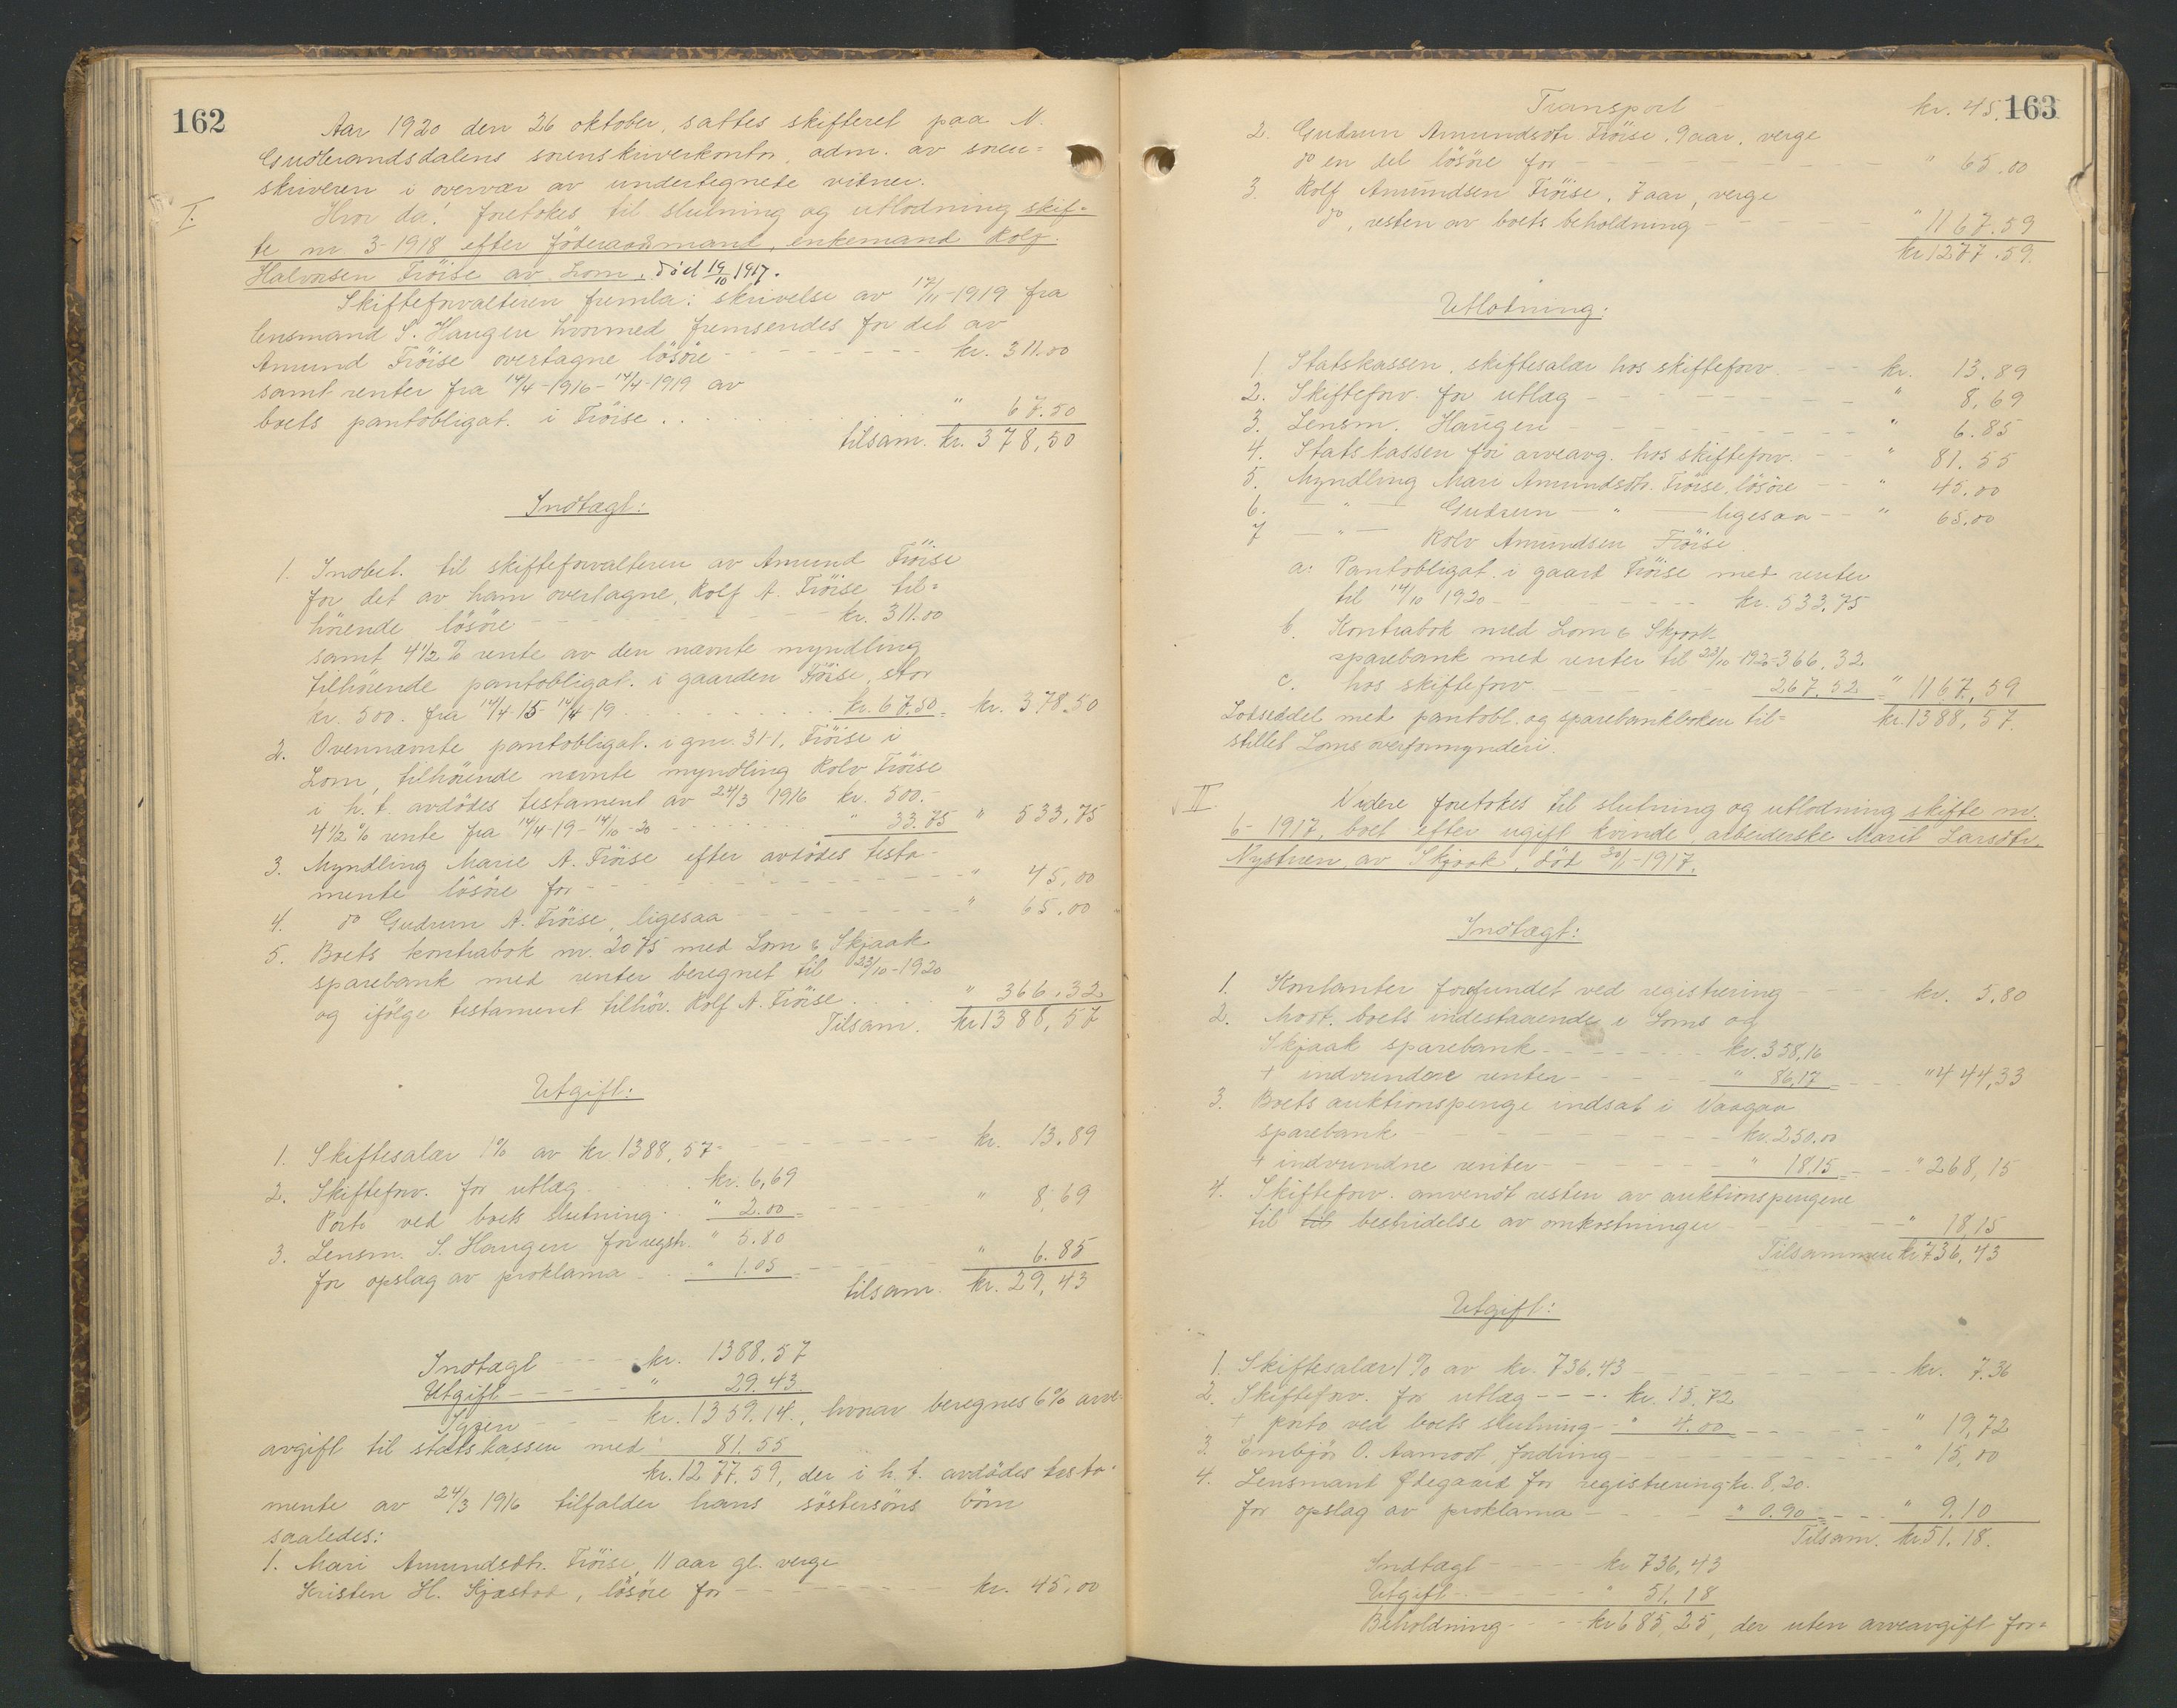 162
Aar 1920 den 26 oktober, sattes skifteret paa N.
Gudbrandsdalens sorenskriverkontor, adm. av soren-
skriveren i overvær av undertegnete vitner.
I.
Hvor da! foretokes til slutning og utlodning skif-
te nr 3-1918 efter föderaadsmand, enkemand Rolf
Halvorsen Fröise av Lom. död 19/10 1917.
Skifteforvalteren fremla: skrivelse av 17/11-1919 fra
lensmand S. Haugen hvormed fremsendes for det av
Amund Fröise overtagne lösöre - - - kr. 311.00
samt renter fra 14/4-1916 - 14/4-1919 av
boets pantobligat. i Fröise . . . " 67.50
tilsam. kr. 378,50
Indtægt:
1. Indbet. til skifteforvalteren av Amund Fröise
for det av ham overtagne, Rolf A. Fröise til=
hörende lösöre - - - kr. 311.00
samt 4 1/2 % rente av den nævnte myndling
tilhörende pantobligat. i gaarden Fröise, stor
kr. 500. fra 14/4-15 - 14/4-19 . . . kr. 67.50 = kr. 378.50
2. Ovennævnte pantobligat. i gnr. 31-1, Fröise i
Lom, tilhörende nævnte myndling Rolv Fröise
i h. t. avdödes testament av 24/3 1916 kr. 500.-
4 1/2 % rente fra 14/4-19 - 14/10-20 - - - " 33.75 " 533,75
3. Myndling Marie A. Fröise efter avdödes testa-
mente lösöre for - - - " 45,00
4. do Gudrun A. Fröise, ligesaa - - - " 65.00
5. Boets kontrabok nr. 2075 med Lom & Skjaak
sparebank med renter beregnet til 23/10-1920
og ifölge testament tilhör. Rolf A. Fröise . . . " 366.32
Tilsam. kr 1388,57
Utgift:
1. Skiftesalær 1% av kr 1388,57 - - - kr. 13.89
2. Skifteforv. for utlæg . . . kr. 6,69
Porto ved boets slutning . " 2.00 = - - - " 8,69
3. Lensm. S. Haugen for regstr. " 5.80
for opslag av proklama - - " 1.05 = - - - " 6.85
tilsam. kr. 29,43
Indtægt - - - kr. 1388.57
Utgift - - - " 29.43
Igjen - - - kr. 1359.14, hvorav beregnes 6% arve-
avgift til statskassen med " 81.55
kr. 1277.59, der i h. t. avdödes testa-
mente av 24/3 1916 tilfalder hans söstersöns börn
saaledes:
1. Mari Amundsdtr. Fröise, 11 aar gl. verge
Kristen H. Kjæstad, lösöre for - - - kr. 45,00
163
Transport - kr. 45.
2. Gudrun Amundsdtr Fröise, 9 aar, verge
do en del lösöre for - - - " 65.00
3. Rolf Amundsen Fröise, 7 aar, verge
do, resten av boets beholdning - - - " 1167.59
kr 1277.59.
Utlodning:
1. Statskassen, skiftesalær hos skifteforv. - - - kr. 13,89
2. Skifteforv. for utlæg - - - " 8,69
3. Lensm. Haugen - - - " 6.85
4. Statskassen for arveavg. hos skifteforv. - - " 81.55
5. Myndling Mari Amundsdtr. Fröise, lösöre - - " 45.00
6. - " - Gudrun - " - ligesaa - - " 65.00
7 - " - Rolv Amundsen Fröise.
a: Pantobligat. i gaard Fröise med renter
til 14/10 1920 - - - kr. 533.75
b. Kontrabok med Lom & Skjaak
sparebank med renter til 23/10-1920 366,32
c. hos skifteforv - - - 267.52 = " 1167,59
Lodseddel med pantobl. og sparebankboken til= kr. 1388,57.
stillet Loms overformynderi.
II
Videre foretokes til slutning og utlodning skifte nr.
6-1917, boet efter ugift kvinde, arbeiderske Marit Larsdtr.
Nystuen, av Skjaak, död 30/1-1917.
Indtægt:
1. Kontanter forefundet ved registrering - - - kr. 5,80
2. Mott. boets indestaaende i Loms og
Skjaak sparebank - - - kr. 358,16
+ indvundne renter - - - " 86,17 = - - - " 444,33
3. Boets auktionspenge indsat i Vaagaa
sparebank - - - kr. 250.00
+ indvundne renter - - - " 18,15 = - - " 268,15
4. Skifteforv. anvendt resten av auktionspengene
til til bestridelse av omkostninger - - - " 18,15
Tilsammen kr 736,43
Utgift:
1. Skiftesalær 1% av kr. 736,43 - - - kr. 7.36
2. Skifteforv. for utlæg - - - kr. 15,72
+ porto ved boets slutning - " 4.00 = - - - " 19,72
3. Embjör O. Aamodt, fordring - - - " 15,00
4. Lensmand Ødegaard for registrering kr. 8,20.
for opslag av proklama - - - " 0.90 = - - - " 9.10
Tilsam. kr 51.18.
Indtægt - - - kr 736,43
Utgift - - - " 51,18
Beholdning - - - kr 685,25, der uten arveavgift for=